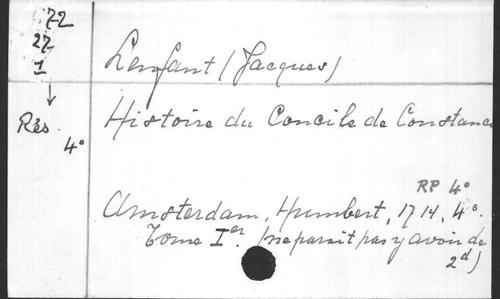 72
27
1
Lenfant (Jacques)
Rés.
4°
Histoire du Concile de Constance
RP 4°
Amsterdam, Humbert, 1714, 4°.
Tome Ier. (ne parait pas y avoir de
2d)